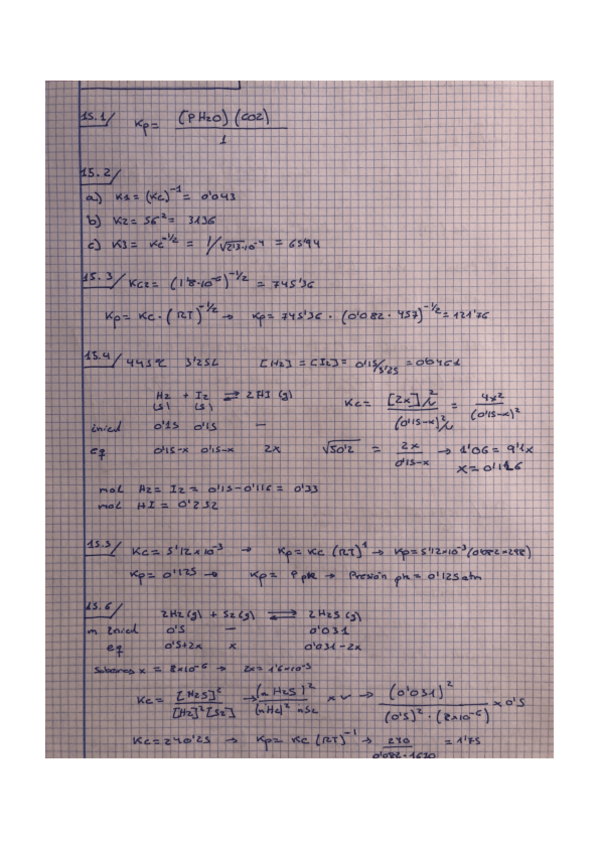 15.1/ Kp= (PH2O) (CO2)
1
15.2/
a) K1 = (Kc)^-1 = 0'043
b) K2 = 56^2 = 3136
c) K3 = Kc^-1/2 = 1/√2'3·10^-4 = 65'94
15.3/ Kc2 = (1'8·10^-6)^-1/2 = 745'36
Kp = Kc · (RT)^-1/2 → Kp = 745'36 · (0'082 · 457)^-1/2 = 121'76
15.4/ 445ºC 3'25L [H2] = [I2] = 0'15/3'25 = 0'0461
H2 + I2 ⇌ 2HI (g)
(g) (g)
Kc = [2x]^2/(0'15-x)^2 = 4x^2/(0'15-x)^2
inicial 0'15 0'15 —
eq 0'15-x 0'15-x 2x √50'2 = 2x/0'15-x → 1'06 = 9'1x
x = 0'116
mol H2 = I2 = 0'15-0'116 = 0'33
mol HI = 0'232
15.5/ Kc = 5'12×10^-3 → Kp = Kc (RT)^1 → Kp = 5'12×10^-3 (0'082×298)
Kp = 0'125 → Kp = P ph → Presión ph = 0'125 atm
15.6/ 2H2 (g) + S2 (g) ⇌ 2H2S (g)
n inicial 0'5 — 0'031
eq 0'5+2x x 0'031-2x
Sabemos x = 8×10^-6 → 2x = 1'6×10^-5
Kc = [H2S]^2/[H2]^2[S2] → (n H2S)^2/(nH2)^2 nS2 × V → (0'031)^2/(0'5)^2 · (8×10^-6) × 0'5
Kc = 240'25 → Kp = Kc (RT)^-1 → 240/0'082·1670 = 1'75